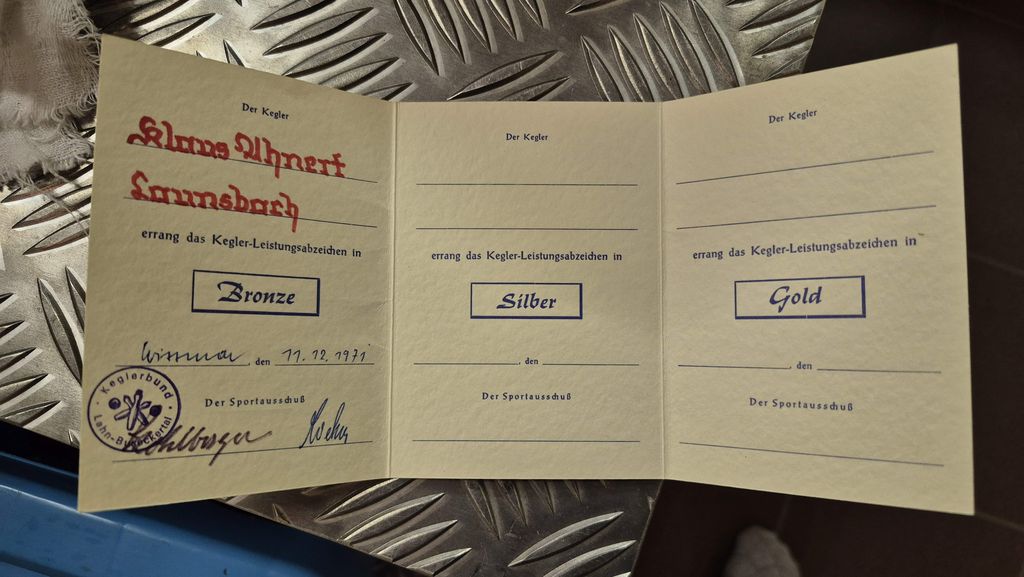 Der Kegler
Klaus Uhnert
Launsbach
errang das Kegler-Leistungsabzeichen in
Bronze
Wissmar, den 11.12.1971
Keglerbund
Lahn-Biebertal
Der Sportausschuß
Der Kegler
errang das Kegler-Leistungsabzeichen in
Silber
, den
Der Sportausschuß
Der Kegler
errang das Kegler-Leistungsabzeichen in
Gold
, den
Der Sportausschuß